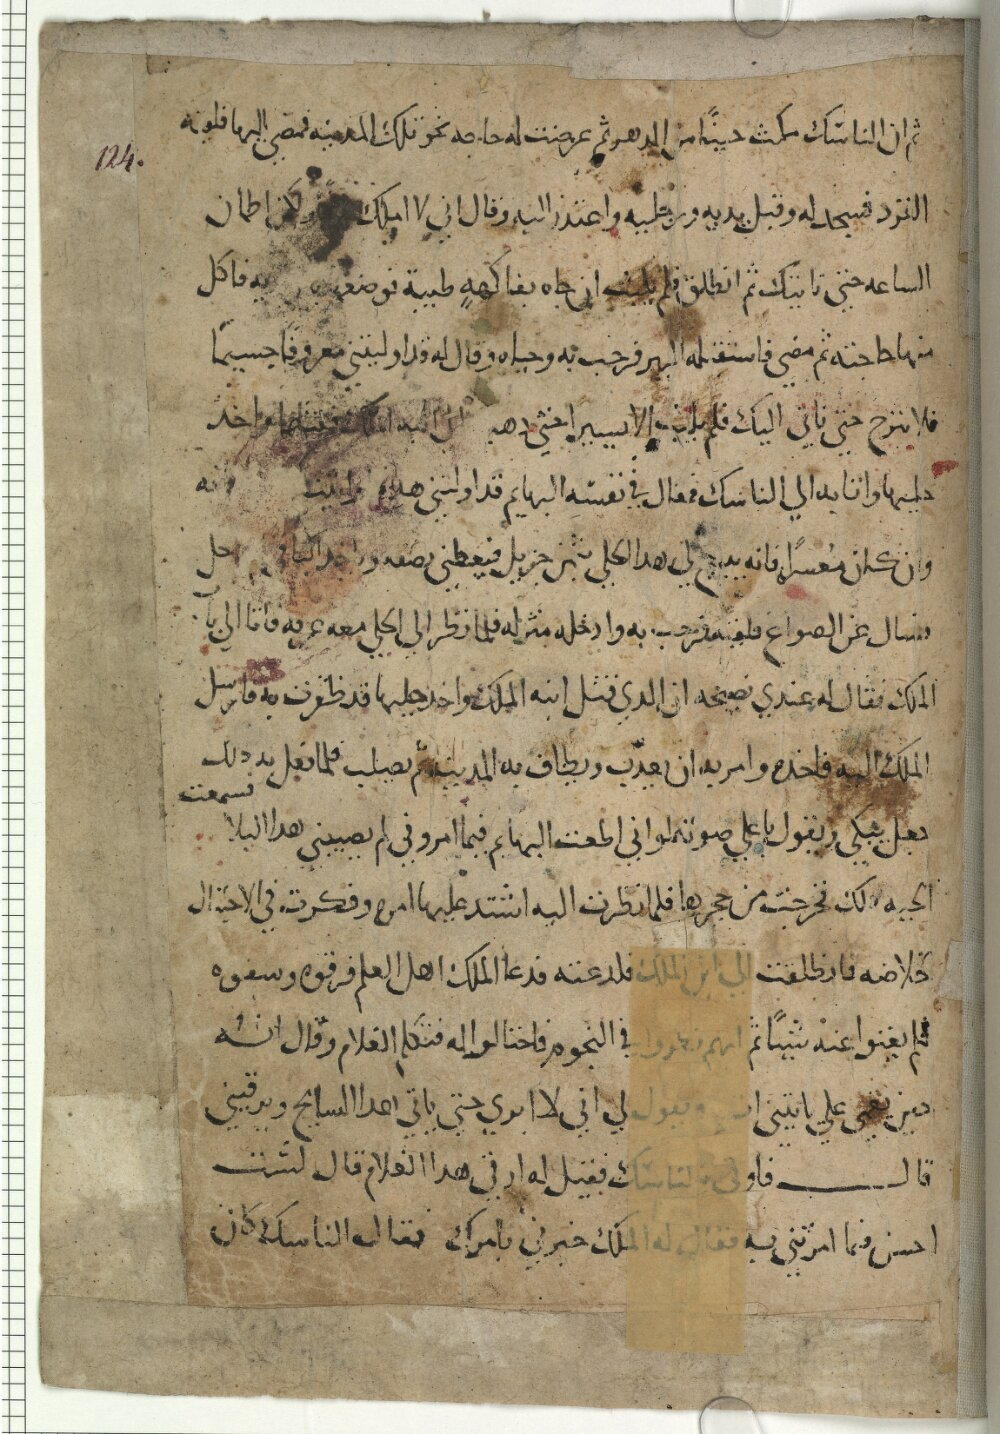 ثم ان الناسك مكث حينًا من الدهر ثم عرضت له حاجه نحو تلك المدينه فمضي اليها فلقيه
124.
القرد فسجد له وقبل يديه ورجليه واعتذر اليه وقال اني لا املك ولكن اطمان
الساعه حتي تاتيك ثم انطلق فلم يلبث ان جاه بفاكهةٍ طيبة فوضعها بين يديه فاكل
منها حاجته ثم مضي فاستقبله الببر فرحب به وحياه وقال له قد اوليتني معروفًا جسيمًا
فلا تبرح حتي ناتي اليك فلم يلبث الا يسيرا حتي ذهب الي ابنه الملك فقتلها واخد
حليها واتا به الي الناسك فقال في نفسه البهايم قد اولتني هدا
وان كان مُعسرًا فانه يبيع لي هدا الحلي بثمن جزيل فيعطيني بعضه وياخد الباقي
فسال عن الصواغ فلقيه فرحب به وادخله منزله فلما نظر الي الحلي معه عرفه فاتا الي باب
الملك فقال له عندي نصيحه ان الدي قتل ابنه الملك واخد حليها قد ظفرت به فارسل
الملك اليه فاخده وامر به ان يعدّب ويطاف به المدينه ثم يصلب فلما فعل به دلك
جعل يبكي ويقول باعلي صوته لو اني اطعت البهايم فيما امروني لم يصيبني هدا البلا
فسمعت
الحيه دلك فخرجت من حجرها فلما نظرت اليه اشتد عليها امره وفكرت في الاحتيال
خلاصه فانطلقت الي ابن الملك فلدغته فدعا الملك اهل العلم فرقوه وسقوه
فلم يغنوا عنه شيئًا ثم انهم نظروا في النجوم فاحتالوا له فتكلم الغلام وقال انه
حين يغمي علي ياتيني ويقول لي اني لا ابري حتي ياتي هدا السايح ويرقيني
قال فاوتي بالناسك فقيل له ارقي هدا الغلام قال لست
احسن فما امرتني به فقال له الملك خبرني بامرك فقال الناسك كان